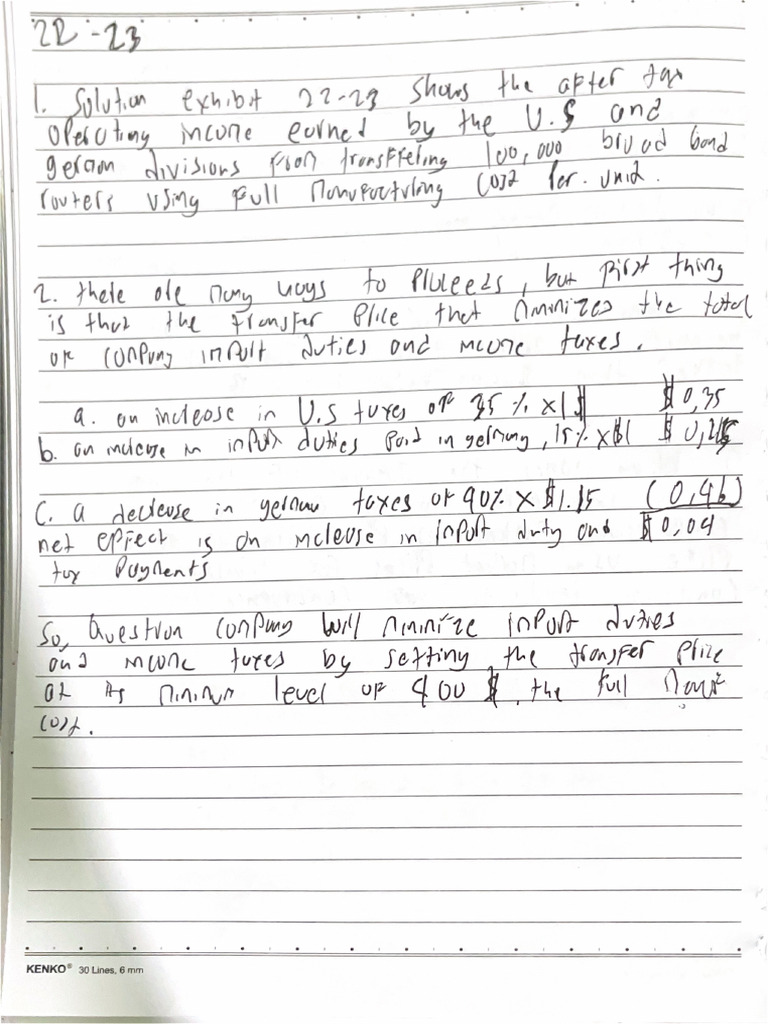 22-23
1. Solution exhibit 22-23 shows the after tax
operating income earned by the U.S and
german divisions from transffering 100,000 broad band
routers using full manufacturing cost per. unit.
2. there are many ways to proceeds, but first thing
is that the transfer price that minimizes the total
of company import duties and income taxes.
a. an increase in U.S taxes of 35 % x 1 $ $ 0,35
b. an increase in import duties paid in germany, 15% x $1 $
C. a decrease in german taxes of 40% x $1.15 (0,46)
net effect is an increase in import duty and $0,04
tax payments
So, Question company will minimize import duties
and income taxes by setting the transfer price
at its minimum level of 400 $, the full
cost.
KENKO® 30 Lines, 6 mm